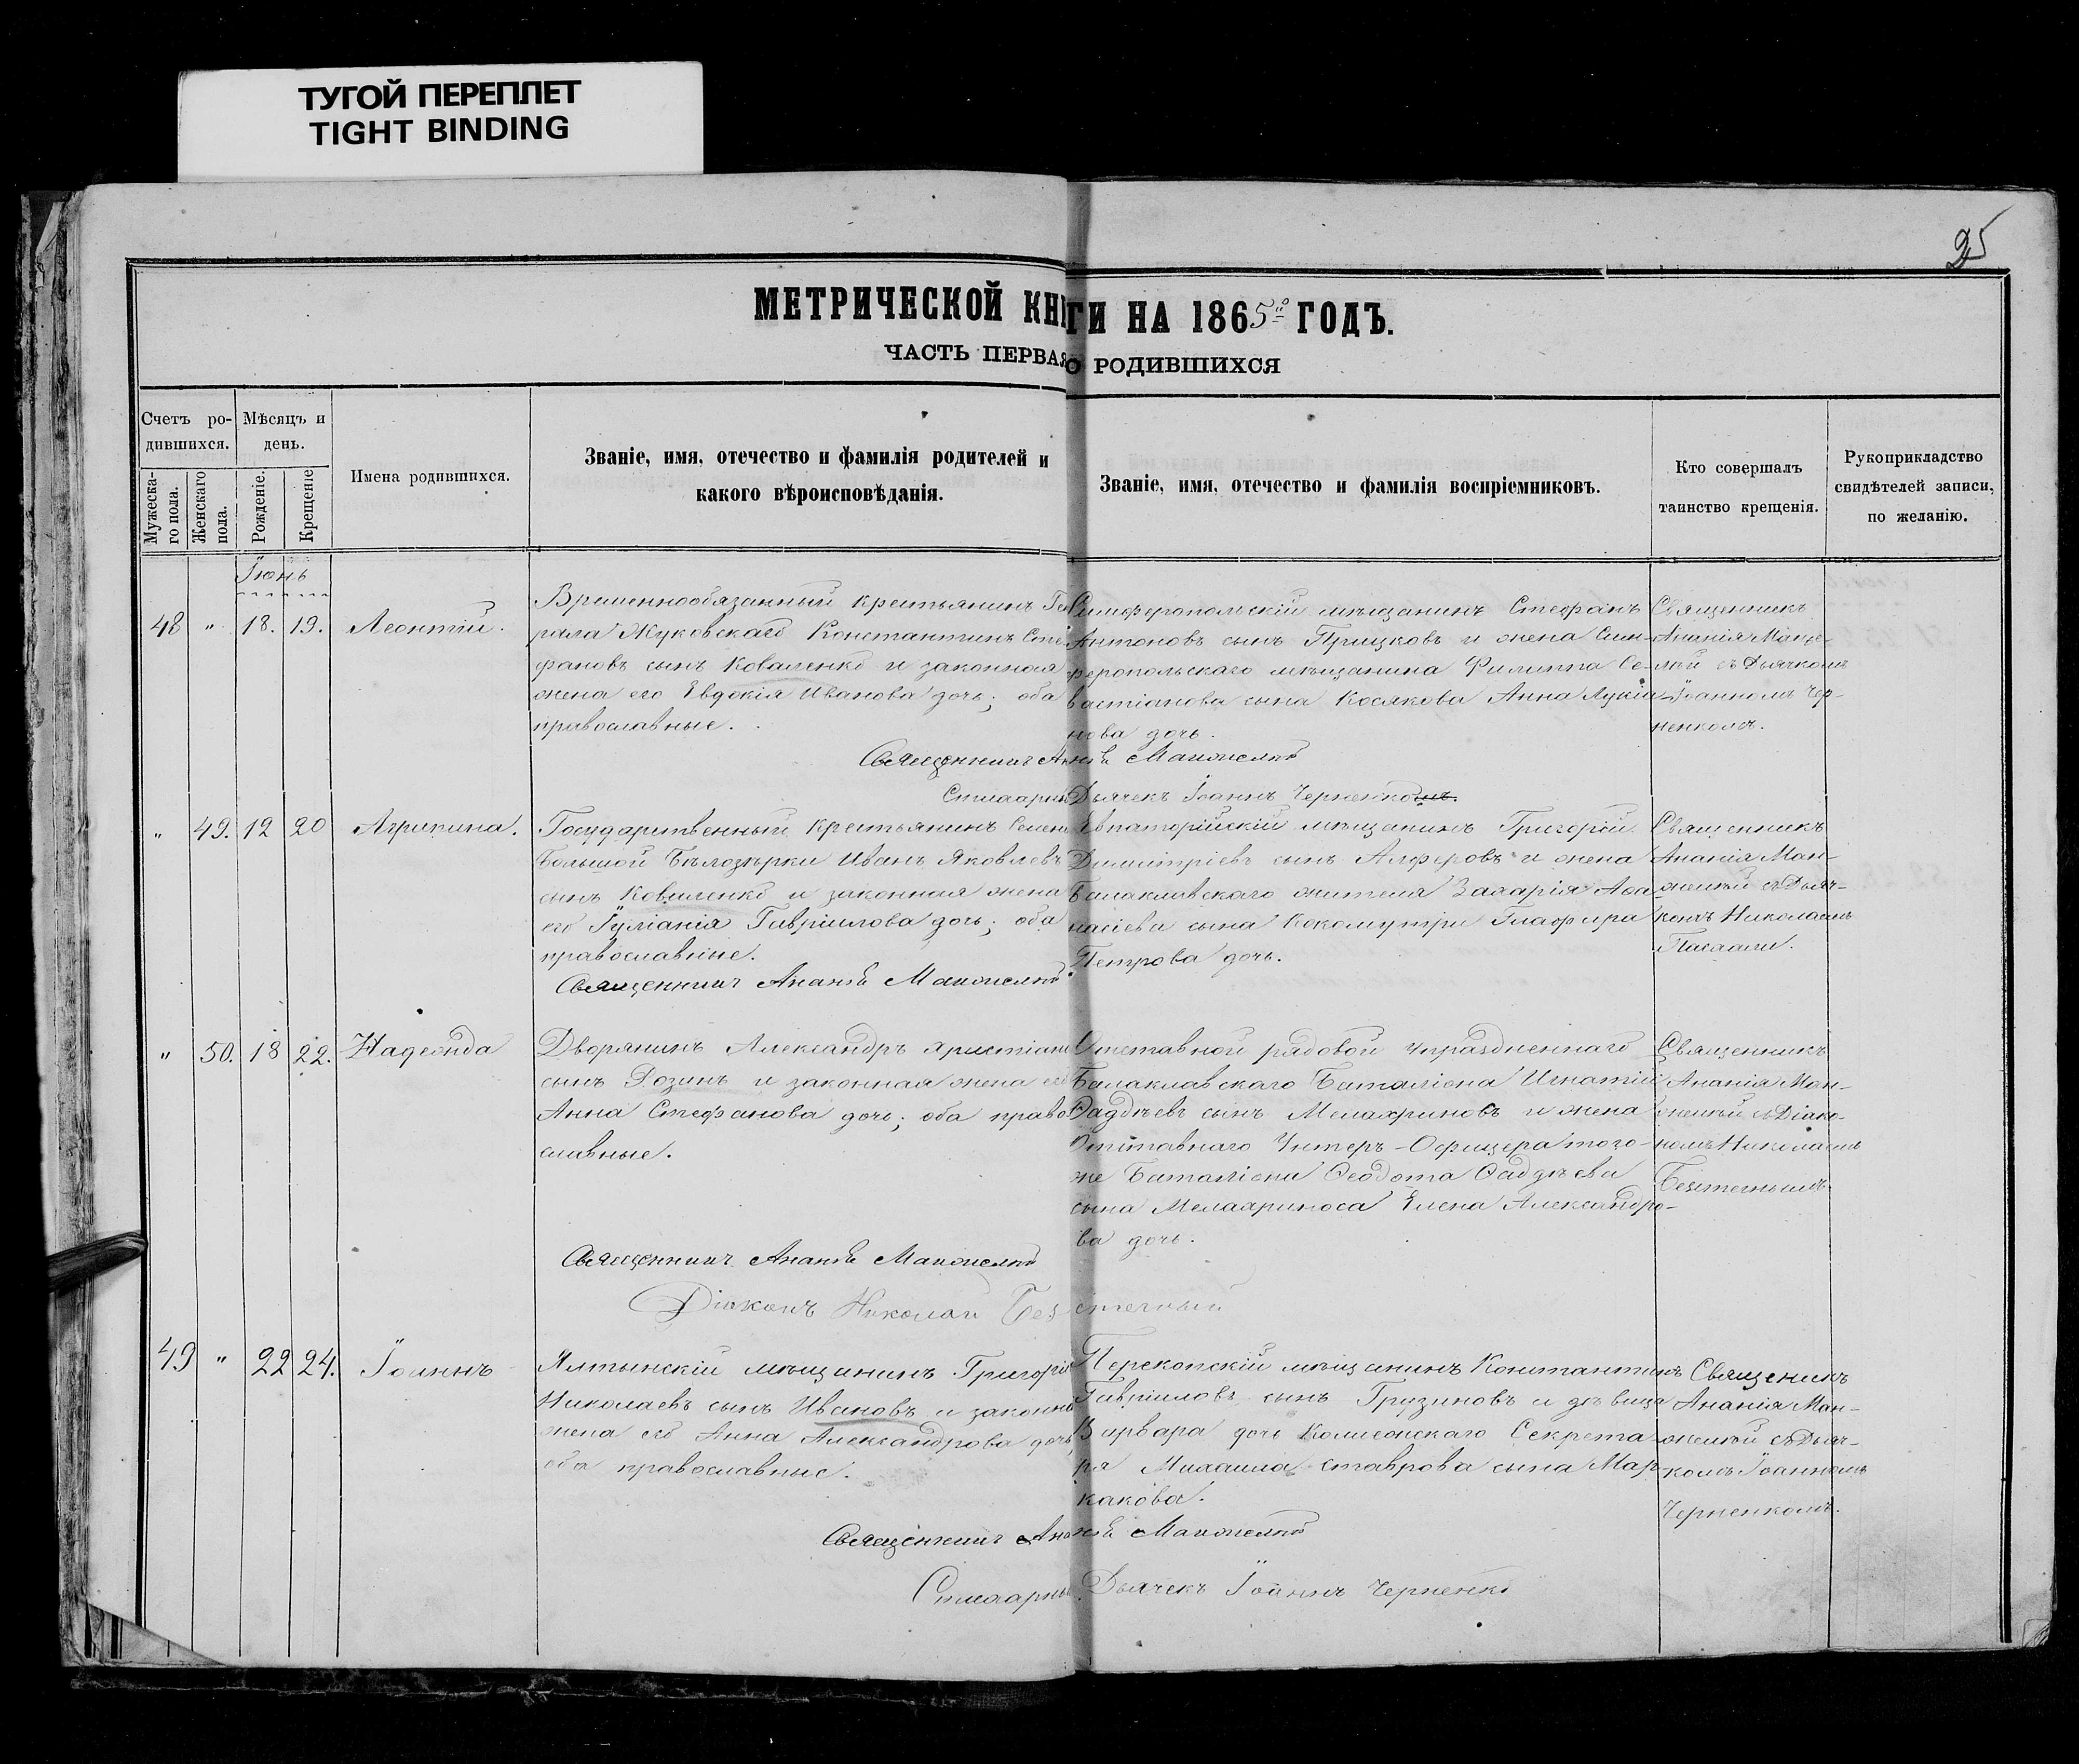 ТУГОЙ ПЕРЕПЛЕТ
TIGHT BINDING
25
МЕТРИЧЕСКОЙ КНИГИ НА 1865й ГОДЪ.
ЧАСТЬ ПЕРВАЯ О РОДИВШИХСЯ
Счетъ ро-
дившихся.
Мужеска-
го пола.
Женскаго
пола.
Мѣсяцъ и
день.
Рожденіе.
Крещеніе
Имена родившихся.
Званіе, имя, отечество и фамилія родителей и
какого вѣроисповѣданія.
Званіе, имя, отечество и фамилія воспріемниковъ.
Кто совершалъ
таинство крещенія.
Рукоприкладство
свидѣтелей записи,
по желанію.
Іюнь
48 " 18. 19. Леонтій.
Временнообязанный крестьянинъ Ген
рала Жуковскаго Константинъ Сте
фановъ сынъ Коваленко и законная
жена его Евдокія Иванова дочь; оба
православные.
Симферопольскій мѣщанинъ Стефанъ
Антоновъ сынъ Прицковъ и жена Сим-
феропольскаго мѣщанина Филиппа Се-
вастіанова сына Косякова Анна Лукіа-
нова дочь.
Священникъ
Ананія
съ Дьячкомъ
Іоанномъ Чер-
ненкомъ.
Священникъ Ананія
Дьячекъ Іоаннъ Черненко
" 49. 12 20 Агрипина.
Государственный крестьянинъ Селен
Большой Бѣлозѣрки Иванъ Яковлевъ
сынъ Коваленко и законная жена
его Іуліанія Гавріилова дочь; оба
православные.
Евпаторійскій мѣщанинъ Григорій
Димитріевъ сынъ Алферовъ и жена
Балаклавскаго жителя Захарія Аѳа
насіева сына Глафира
Петрова дочь.
Священникъ
Ананія Ман-
желѣй съ Дьяч-
комъ Николаемъ
Священникъ Ананія
" 50. 18 22. Надежда
Дворянинъ Александръ Христіан
сынъ Розинъ и законная жена его
Анна Стефанова дочь; оба право
славные.
Отставной рядовой упраздненнаго
Балаклавскаго Баталіона Игнатій
Ѳаддѣевъ сынъ Мелахриновъ и жена
Отставнаго Унтеръ-Офицера того-
же Баталіона Ѳеодота Ѳаддѣева
сына Мелахриноса Елена Александро-
ва дочь.
Священникъ
Ананія Ман-
желѣй съ Діако-
номъ Николаемъ
Священникъ Ананія
Діаконъ Николай
49 " 22 24. Іоаннъ
Ялтынскій мѣщанинъ Григорій
Николаевъ сынъ Ивановъ и законна
жена его Анна Александрова дочь
оба православные.
Перекопскій мѣщанинъ Константинъ
Гавріиловъ сынъ Грузиновъ и дѣвица
Варвара дочь Секрета-
ря Михаила Ставрова сына Мар-
какова.
Священикъ
Ананія Ман-
желѣй съ Дьяч-
комъ Іоанномъ
Черненкомъ.
Священникъ Ананія
Дьячекъ Іоаннъ Черненко